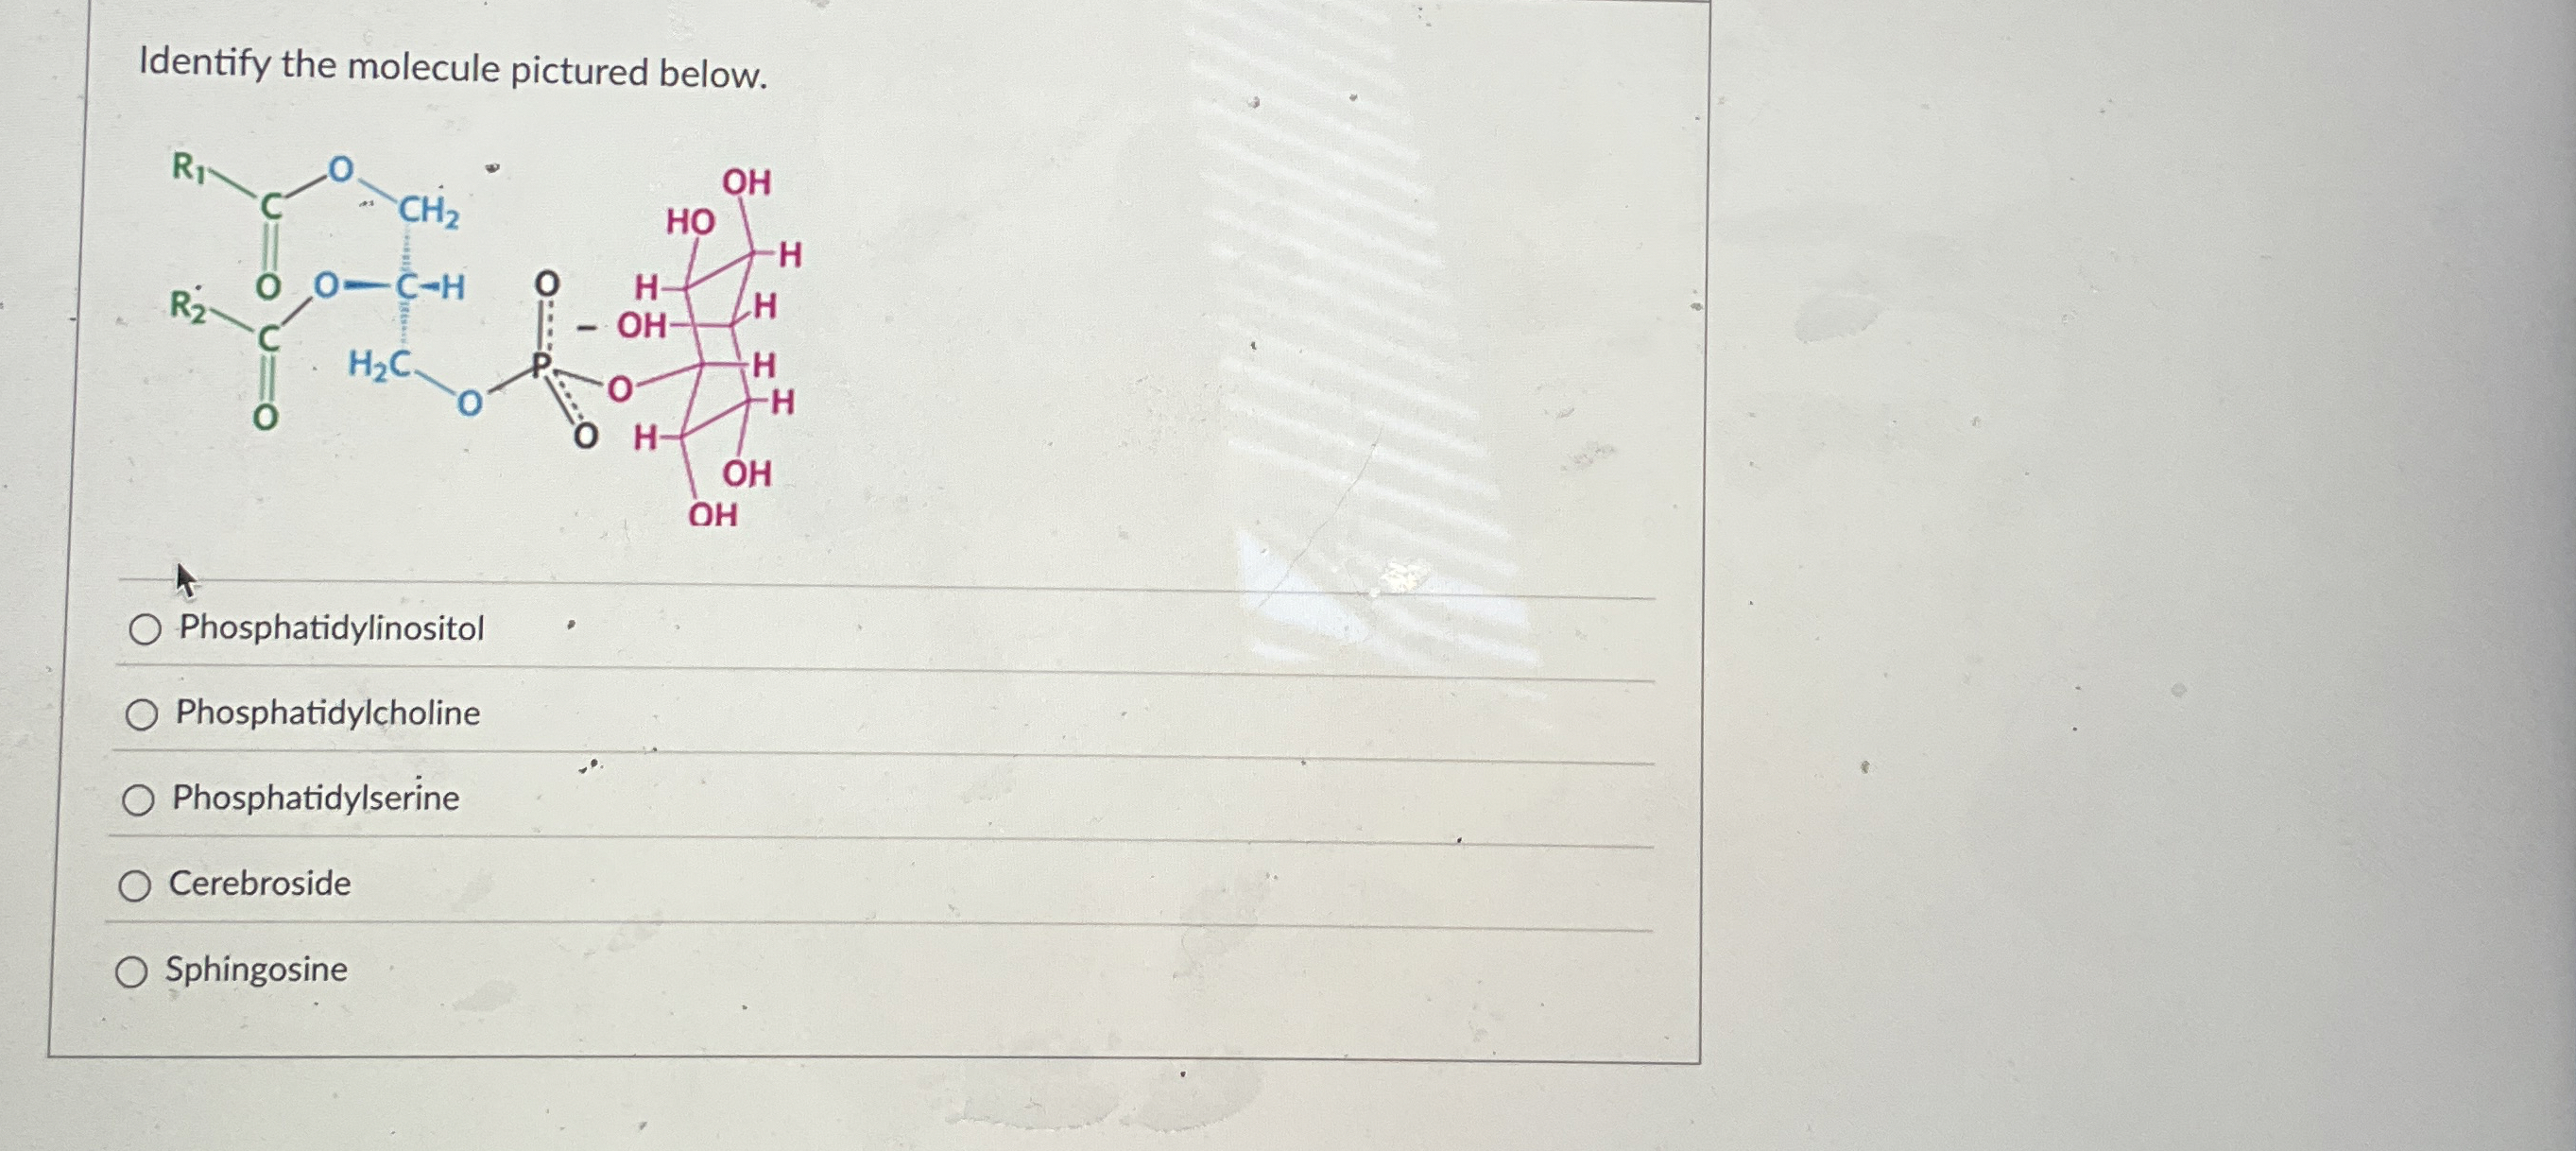 Identify the molecule pictured below.
R1
O
C
CH2
O
O
C
H
R2
C
O
H2C
O
O
P
O
O
–
OH
HO
H
H
H
OH
H
H
H
OH
OH
Phosphatidylinositol
Phosphatidylcholine
Phosphatidylserine
Cerebroside
Sphingosine